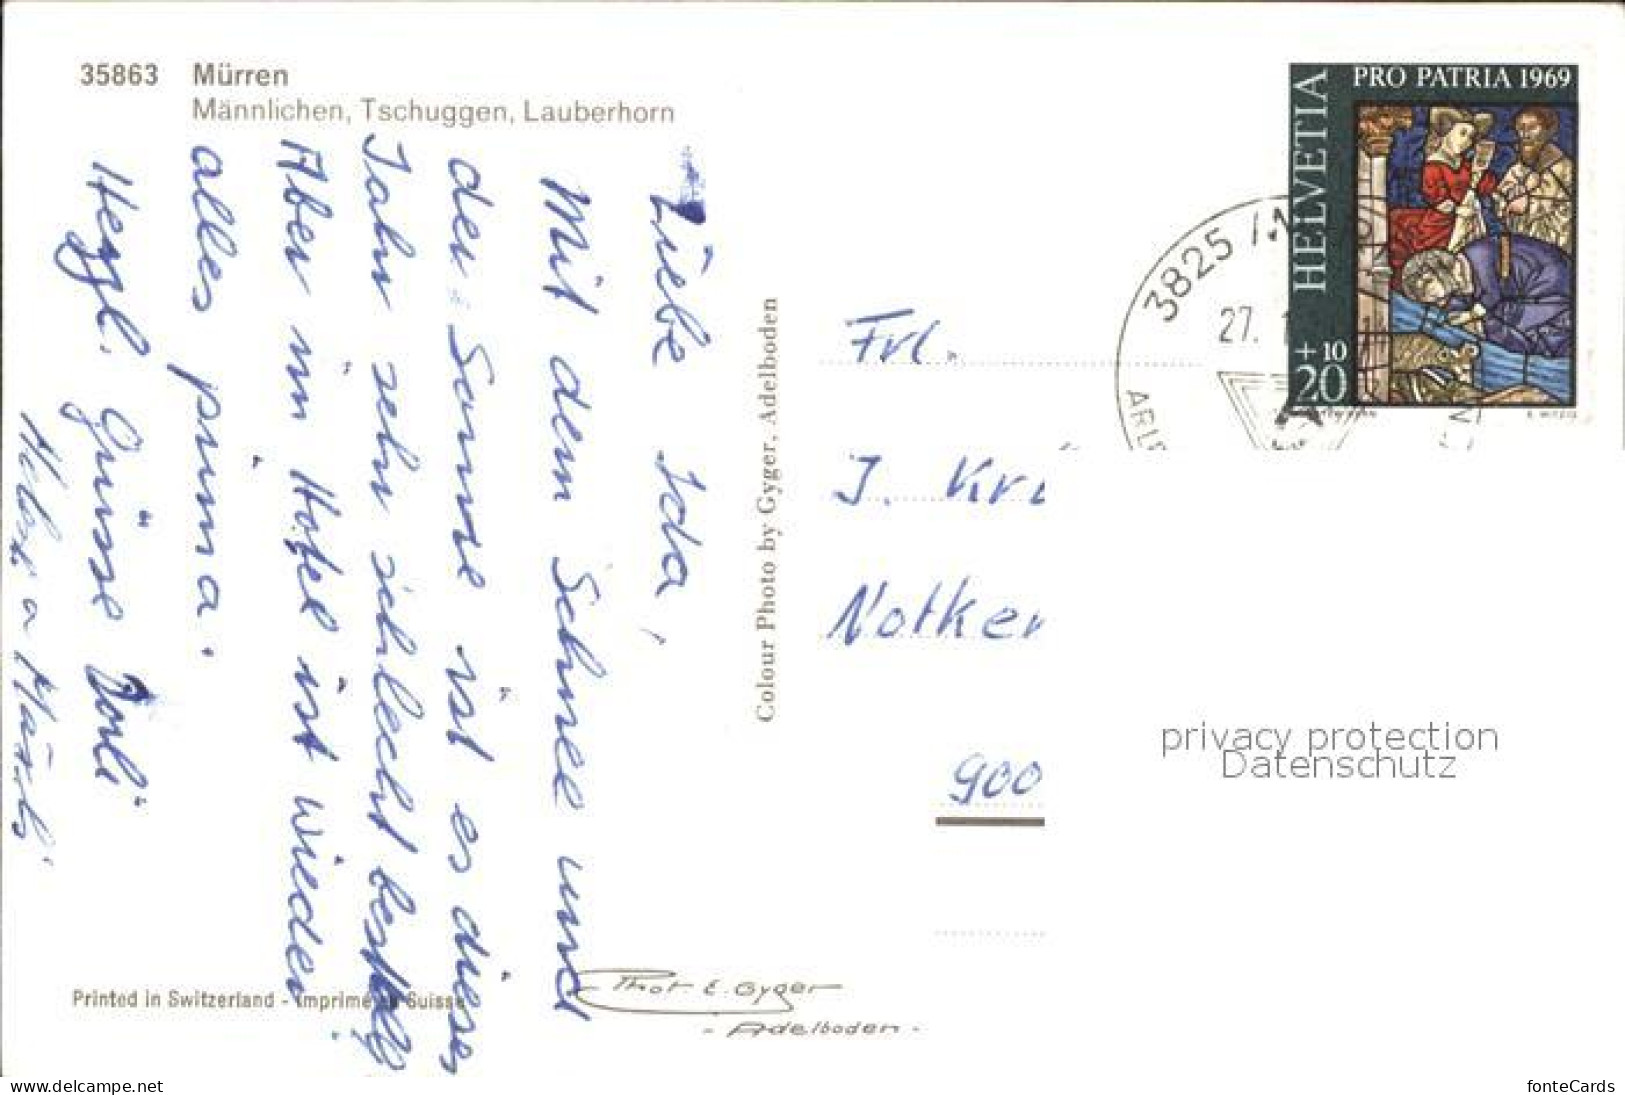 35863 Mürren
Männlichen, Tschuggen, Lauberhorn
Liebe Ida,
Mit dem Schnee und
der Sonne ist es dieses
Jahr sehr schlecht bestellt
Aber im Hotel ist wieder
alles prima.
Herzl. Grüsse
Printed in Switzerland - Imprimé en Suisse
Colour Photo by Gyger, Adelboden
Phot E. Gyger
- Adelboden -
PRO PATRIA 1969
HELVETIA
+10
20
3825 /M
27. 1
Frl.
I. Kr
Notker
900
privacy protection
Datenschutz
www.delcampe.net
fonteCards